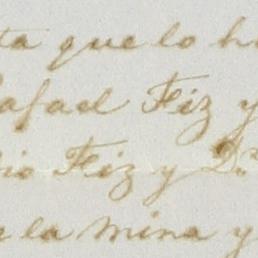 ta que lo h
Rafael Fiz y
io Fiz y Dn
la mina y